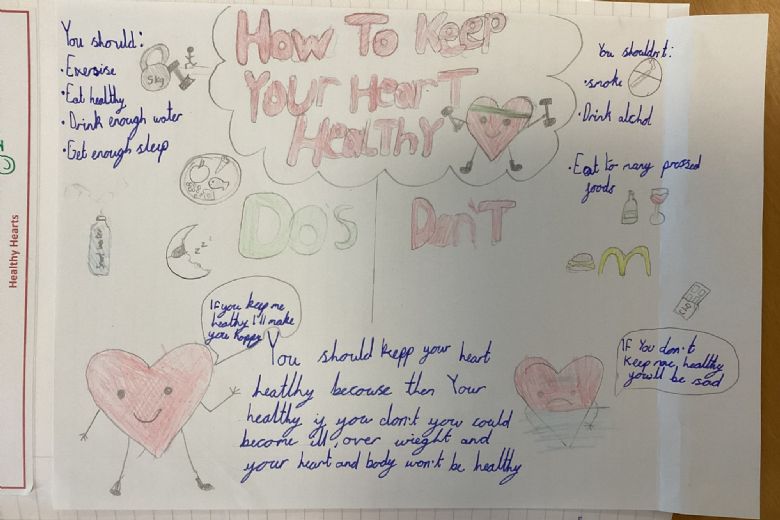 How To Keep
Your Heart
Healthy
You should:
• Exersise
• Eat healthy
• Drink enough water
• Get enough sleep
5kg
You shouldn't:
• smoke
• Drink alchol
• Eat to many prossed
foods
Do's
Don'T
Smart water
zzz
If you keep me
healthy I'll make
you happy
You should kepp your heart
heatlhy becouse then Your
healthy if you don't you could
become ill, over wieght and
your heart and body won't be healthy
If You don't
Keep me, healthy
you'll be sad
Healthy Hearts